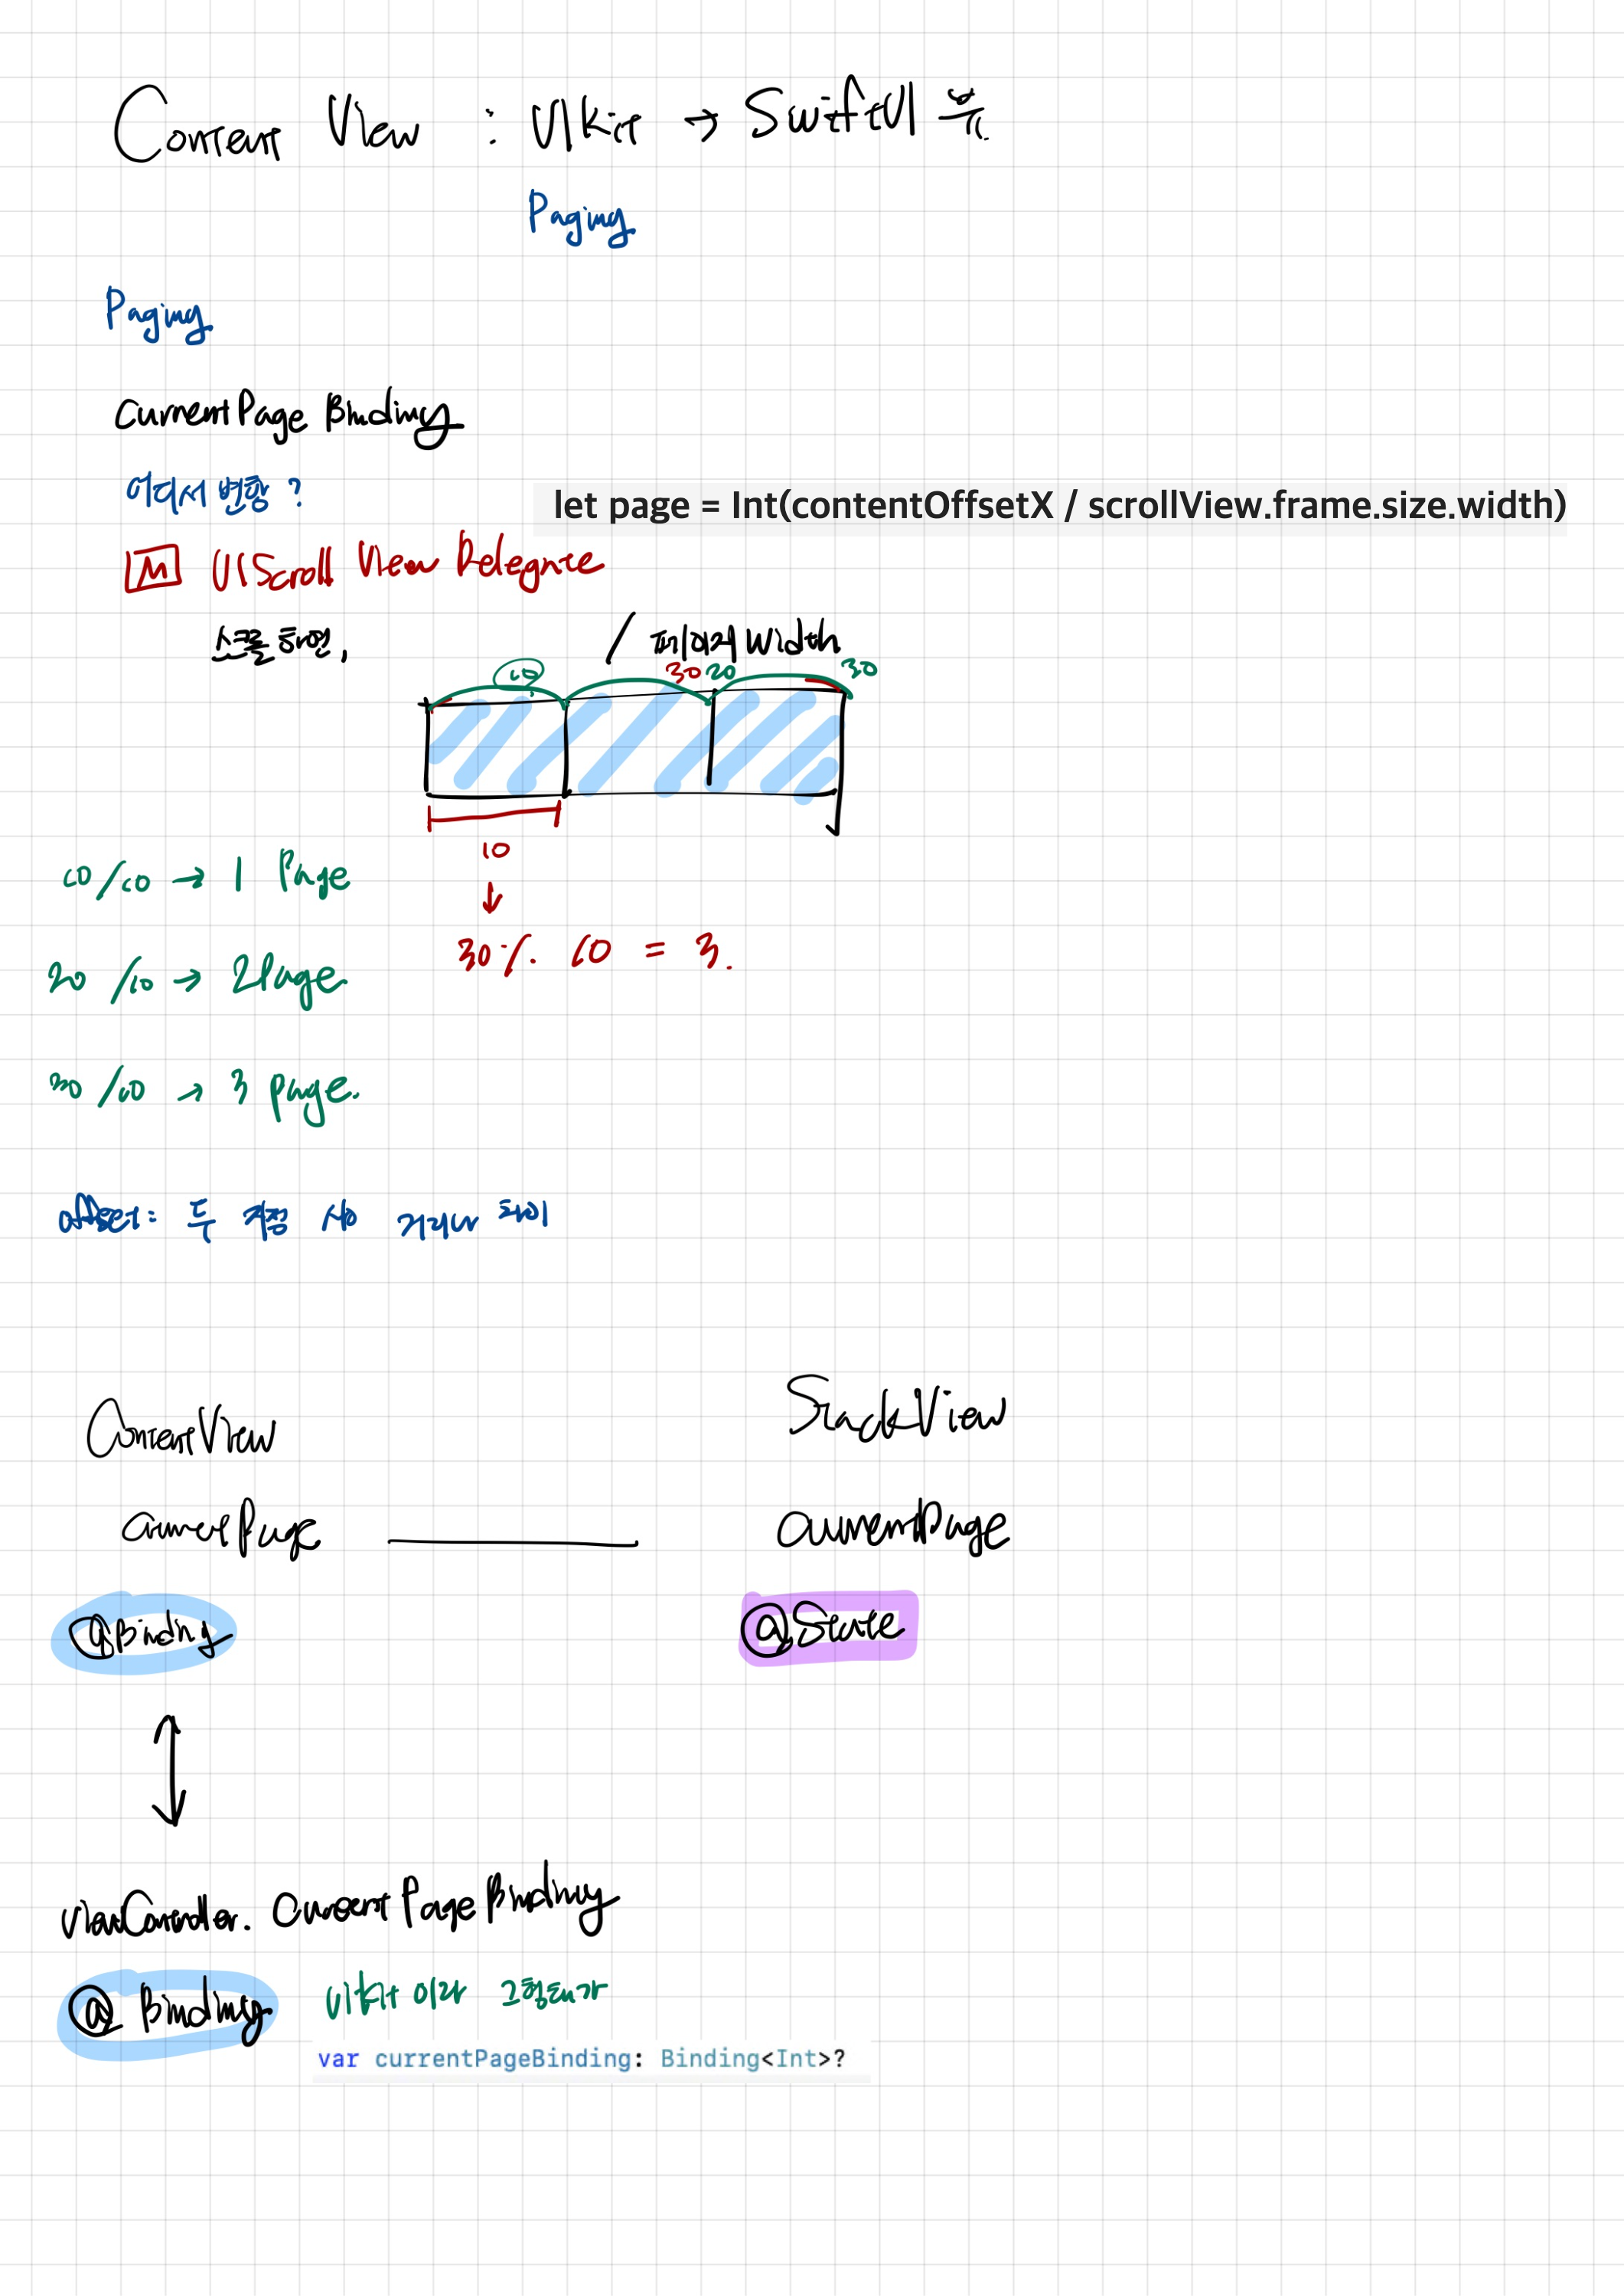 Content View : UIKit → SwiftUI 뷰.
Paging
Paging
currentPage Binding
어디서 변함?
let page = Int(contentOffsetX / scrollView.frame.size.width)
M UIScroll View Delegate
스크롤 하면,
/ 페이지 width
10 30 20 30
10
10/10 → 1 Page
↓
30 % 10 = 3.
20/10 → 2Page
30/10 → 3 page.
offset: 두 지점 사이 거리나 차이
ContentView StackView
currentPage currentPage
@Binding @State
viewController. CurrentPageBinding
@Binding
var currentPageBinding: Binding<Int>?